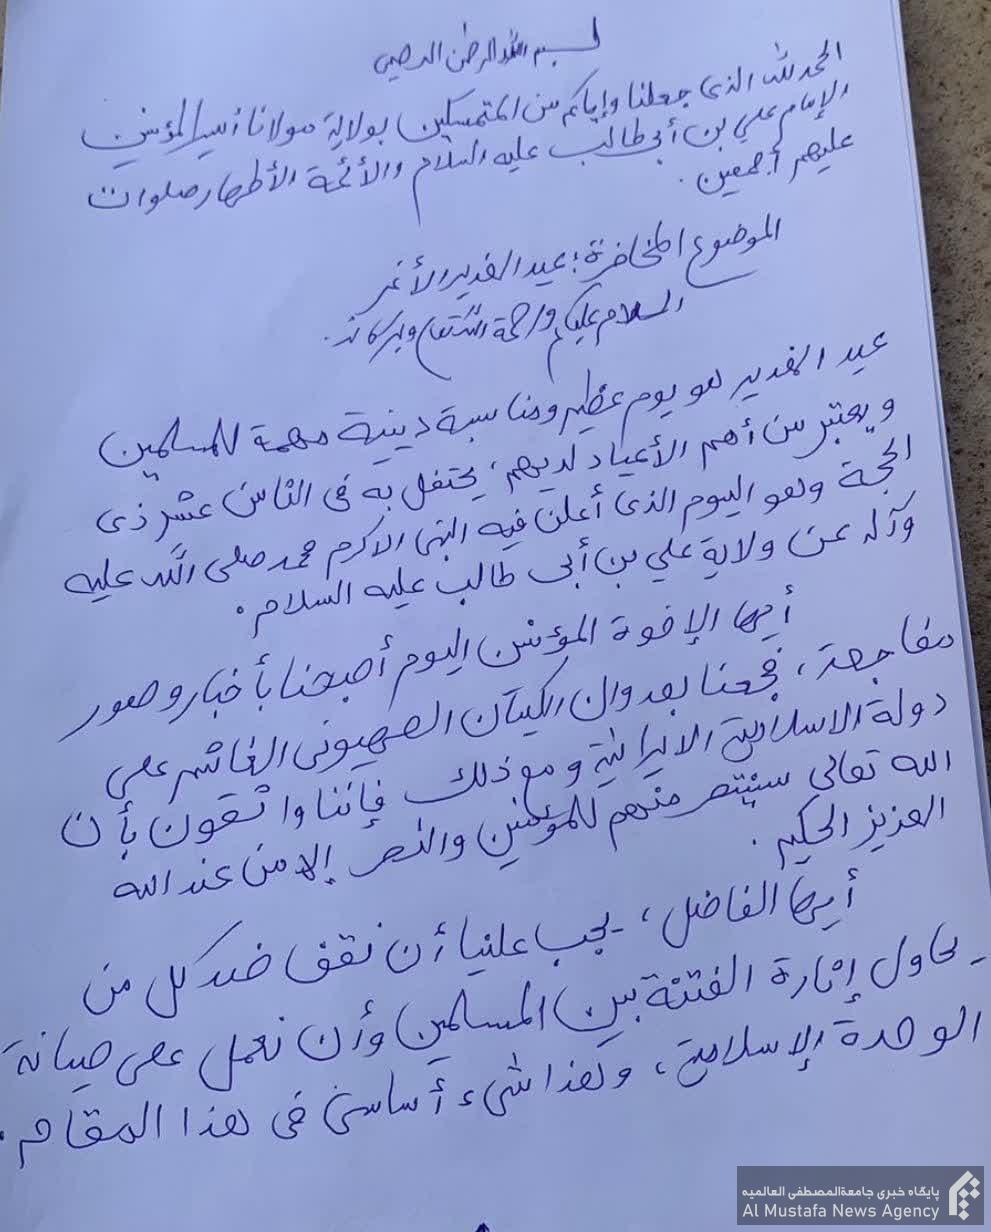 بسم الله الرحمن الرحيم
الحمد لله الذى جعلنا وإياكم من المتمسكين بولاية مولانا أمير المؤمنين
الإمام علي بن أبى طالب عليه السلام والأئمة الأطهار صلوات
عليهم أجمعين .
الموضوع المحاضرة : عيد الغدير الأغر
السلام عليكم ورحمة الله تعالى وبركاته .
عيد الغدير هو يوم عظيم ومناسبة دينية مهمة للمسلمين
ويعتبر من أهم الأعياد لديهم، يحتفل به فى الثامن عشر ذى
الحجة وهو اليوم الذى أعلن فيه النبى الاكرم محمد صلى الله عليه
وآله عن ولاية علي بن أبى طالب عليه السلام .
أيها الإخوة المؤمنين اليوم أصبحنا بأخبار وصور
مفاجعة، فجعنا بعدوان الكيان الصهيونى الغاشم على
دولة الاسلامية الايرانية ومع ذلك فإننا واثقون بأن
الله تعالى سينتصر منهم للمؤمنين والنصر إلا من عند الله
العزيز الحكيم .
أيها الفاضل، يجب علينا أن نقف ضد كل من
يحاول إثارة الفتنة بين المسلمين وأن نعمل على صيانة
الوحدة الإسلامية، وهذا شىء أساسى فى هذا المقام .
پایگاه خبری جامعةالمصطفی العالمیه
Al Mustafa News Agency